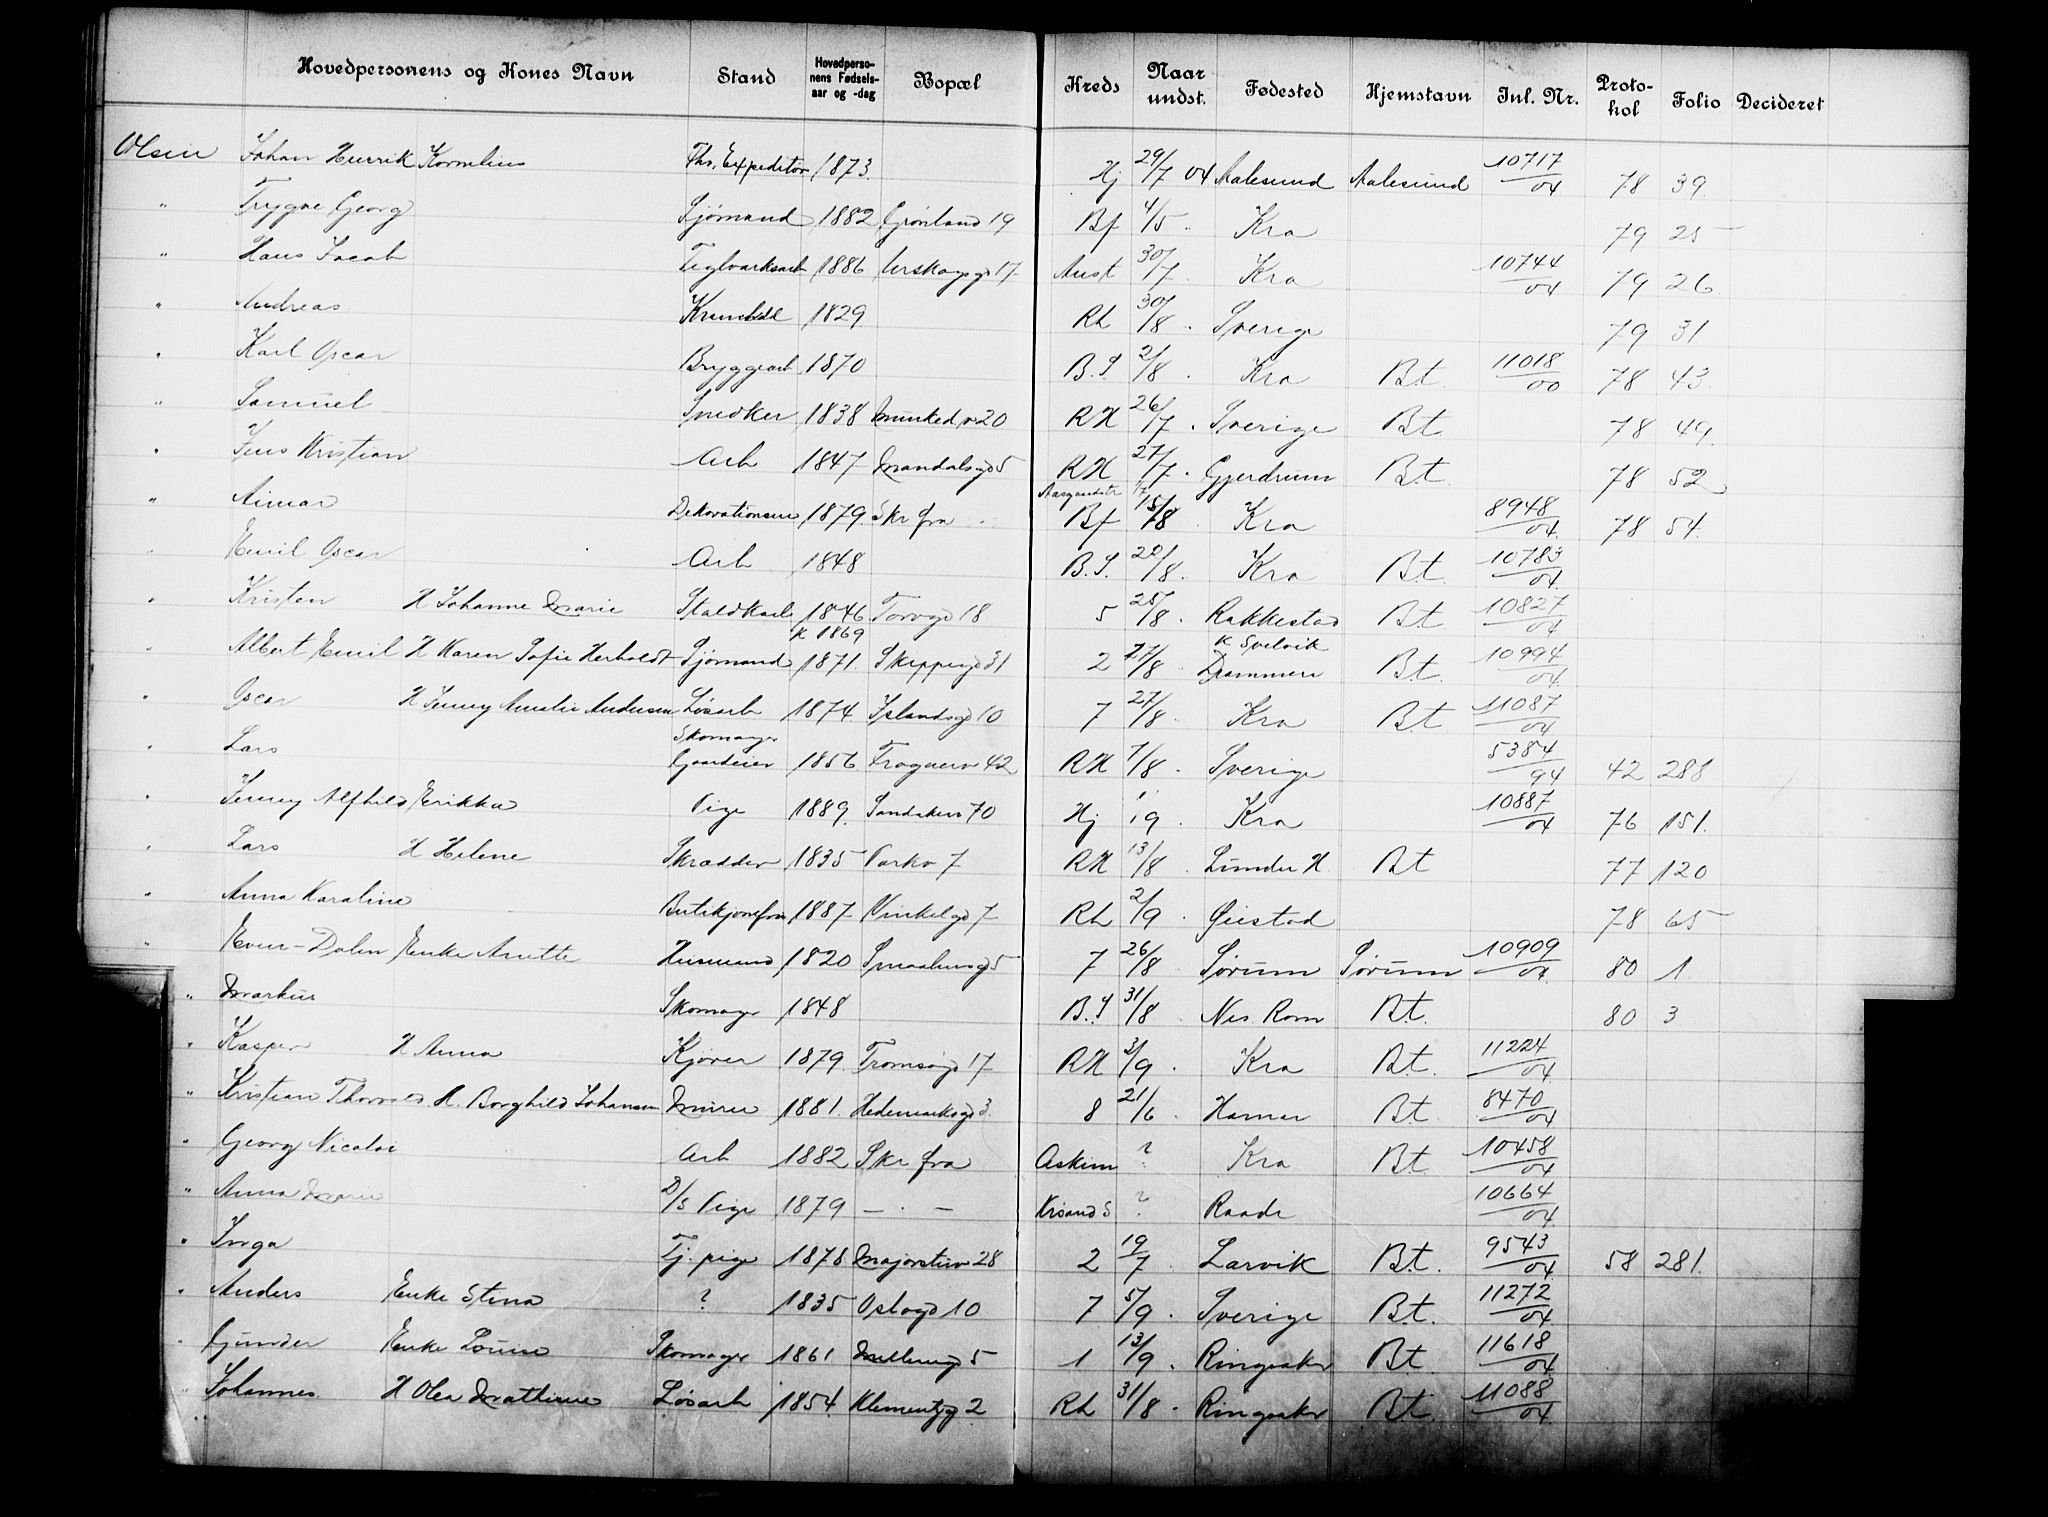 Hovedpersonens og Kones Navn Stand Hovedperso-nens Fødsels-aar og -dag Bopæl Kreds Naar undst. Fødested Hjemstavn Jnl. Nr. Proto-kol Folio Decideret
Olsen Johan Henrik Kornelius Ths. Expeditør 1873. Hj 29/7 04 Aalesund Aalesund 10717/04 78 39.
" Trygve Georg Sjømand 1882 Grønland 19 Bf 4/5 . Kra 79 25
" Hans Jacob Teglværksarb 1886 Urskougsgd 17 Aust 30/7 . Kra 10744/04 79 26.
" Andreas 1829 Rh 30/8 . Sverige 79 31
" Karl Oscar Bryggearb 1870 B.S 2/8 . Kra B.t. 11018/00 78 43.
" Samuel Snedker 1838 Munkedv 20 RH 26/7 . Sverige Bt 78 49.
" Jens Kristian Arb 1847 Mandalsgd 5 RH 27/7 . Gjerdrum B.t. 78 52
" Aimar 1879 Skr fra . Bf 15/8 Kra 8948/04 78 54.
" Emil Oscar Arb 1848 B.S. 22/8 . Kra B.t. 10783/04
" Kristen H Johanne Marie Staldkarl 1846 Torvgd 18 5 25/8 . Rakkestad B.t. 10827/04
" Albert Emil H Karen Sofie Herholdt Sjømand K 1869 1871. Skippergd 31 2 27/8 . K Svelvik Drammen B.t. 10994/04
" Oscar H Jenny Amalie Andersen Løsarb 1874 Islandsgd 10 7 27/8 . Kra B.t 11087/04
" Lars Skomager Gaardeier 1856 Frognerv 42 RH 7/8 . Sverige 5384/94 42 288
" Jenny Alfhild Erikka Pige 1889. Sandakerv 70 Hj 1/9 . Kra 10887/04 76 151.
" Lars H Helene Skrædder 1835 Parkv 7 RH 13/8 . Lunder H. Bt 77 120
" Anna Karoline Butikjomfru 1887 Vinkelgd 7 Rh 2/9 . Øiestad 78 65
" Even-Dalen Enke Anette Husmand 1820 Smaalensgd 5 7 26/8 . Sørum Sørum 10909/04. 80 1
" Markus Skomager 1848 B.S 31/8 . Nes. Rom B.t. 80 3
" Kasper H Anna Kjører 1879. Tromsøgd 17 RH 3/9 . Kra B.t. 11224/04.
" Kristian Thorvald. H. Borghild Johansen Murer 1881. Hedemarksgd 3. 8 21/6 . Hamar B.t. 8470/04
" Georg Nicolai Arb 1882 Skr fra Askim ? Kra B.t 10458/04
" Anna Marie D/s Pige 1879 — . — Krsand S ? Raade 10664/04.
" Inga Tj. pige 1878 Majorstuv 28 2 19/7 . Larvik B.t. 9543/04. 58 281.
" Anders Enke Stina ? 1835 Oslogd 10 7 5/9 . Sverige B.t. 11272/04.
" Gunder Enke Louise Skomager 1861 Møllergd 5 1 13/9 . Ringsaker B.t. 11618/04.
" Johannes H Olea Mathisne Løsarb 1854. Klementsgd 2 Rh 31/8 . Ringsaker B.t. 11088/04.